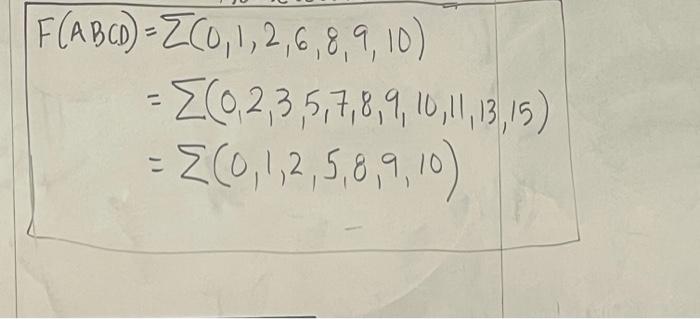 F(ABCD) = Σ(0,1,2,6,8,9,10)
= Σ(0,2,3,5,7,8,9,10,11,13,15)
= Σ(0,1,2,5,8,9,10)